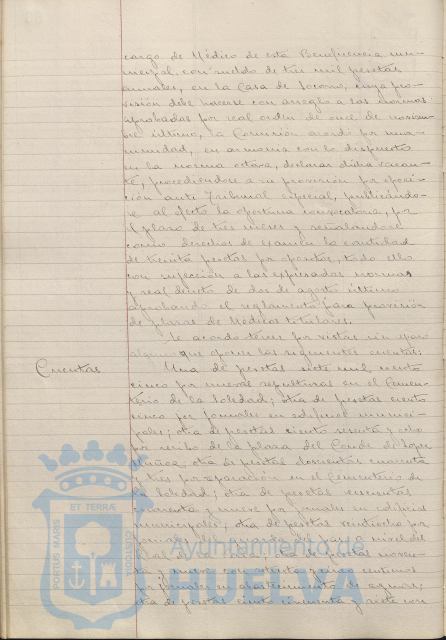 cargo de Médico de esta Beneficencia mu-
nicipal, con sueldo de tres mil pesetas
anuales, en la Casa de Socorro, cuya pro-
visión debe hacerse con arreglo a las normas
aprobadas por real orden de once de noviem-
bre último, la Comisión acordó por una-
nimidad, en armonía con lo dispuesto
en la norma octava, declarar dicha vacan-
te, procediéndose a su provisión por oposi-
ción ante Tribunal especial, publicándo-
se al efecto la oportuna convocatoria, por
el plazo de tres meses y señalándose
como derechos de examen la cantidad
de treinta pesetas por opositor, todo ello
con sujeción a las expresadas normas
y real decreto de dos de agosto último
aprobando el reglamento para provisión
de plazas de Médicos titulares.
Se acordó tener por vistas sin reparo
alguno que oponer las siguientes cuentas:
Cuentas
Una de pesetas siete mil ciento
cinco por nuevas sepulturas en el Cemen-
terio de la Soledad; otra de pesetas ciento
cinco por jornales en edificios munici-
pales; otra de pesetas ciento sesenta y ocho
por recibo de la plaza del Conde de López
Muñoz; otra de pesetas doscientas cuarenta
y tres por reparación en el Cementerio de
la Soledad; otra de pesetas
cuarenta y nueve por jornales en edificios
municipales; otra de pesetas veintiocho por
jornales del guarda del paso a nivel del
otra de pesetas noven-
ta y nueve con ochenta y cinco céntimos
por jornales en abastecimiento de aguas;
otra de pesetas ciento cincuenta y siete con
PORTUS MARIS
ET TERRÆ
CUSTODIA
Ayuntamiento de
HUELVA